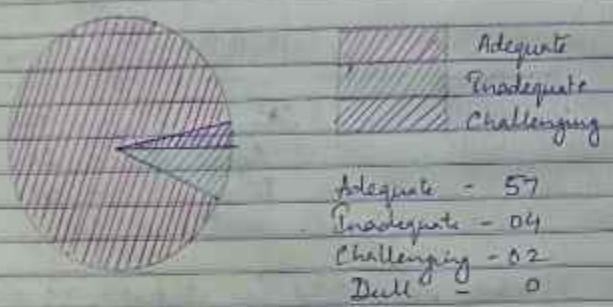 Adequate
Inadequate
Challenging
Adequate - 57
Inadequate - 04
Challenging - 02
Dull - 0